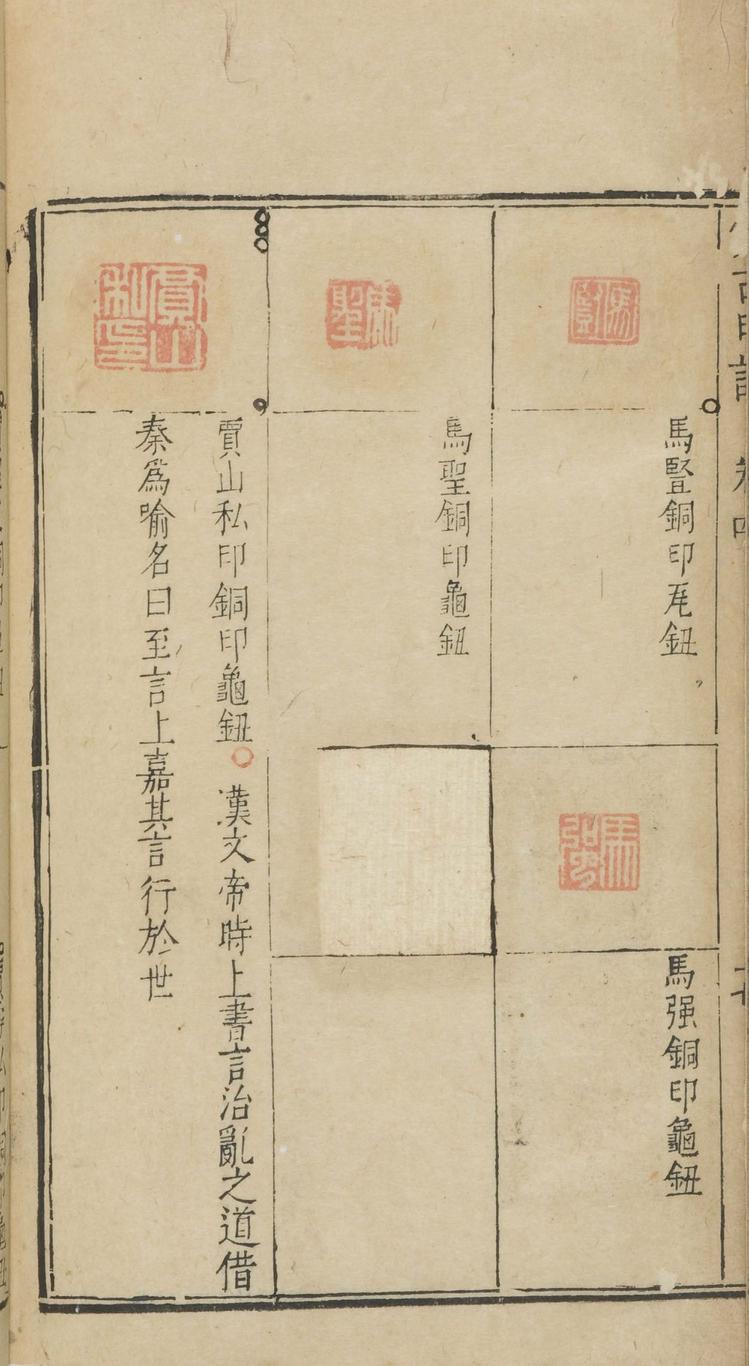 馬豎銅印瓦鈕
馬强銅印龜鈕
馬聖銅印龜鈕
賈山私印銅印龜鈕○漢文帝時上書言治亂之道借
秦爲喻名曰至言上嘉其言行於世
賈山私印
馬聖
馬豎
馬强